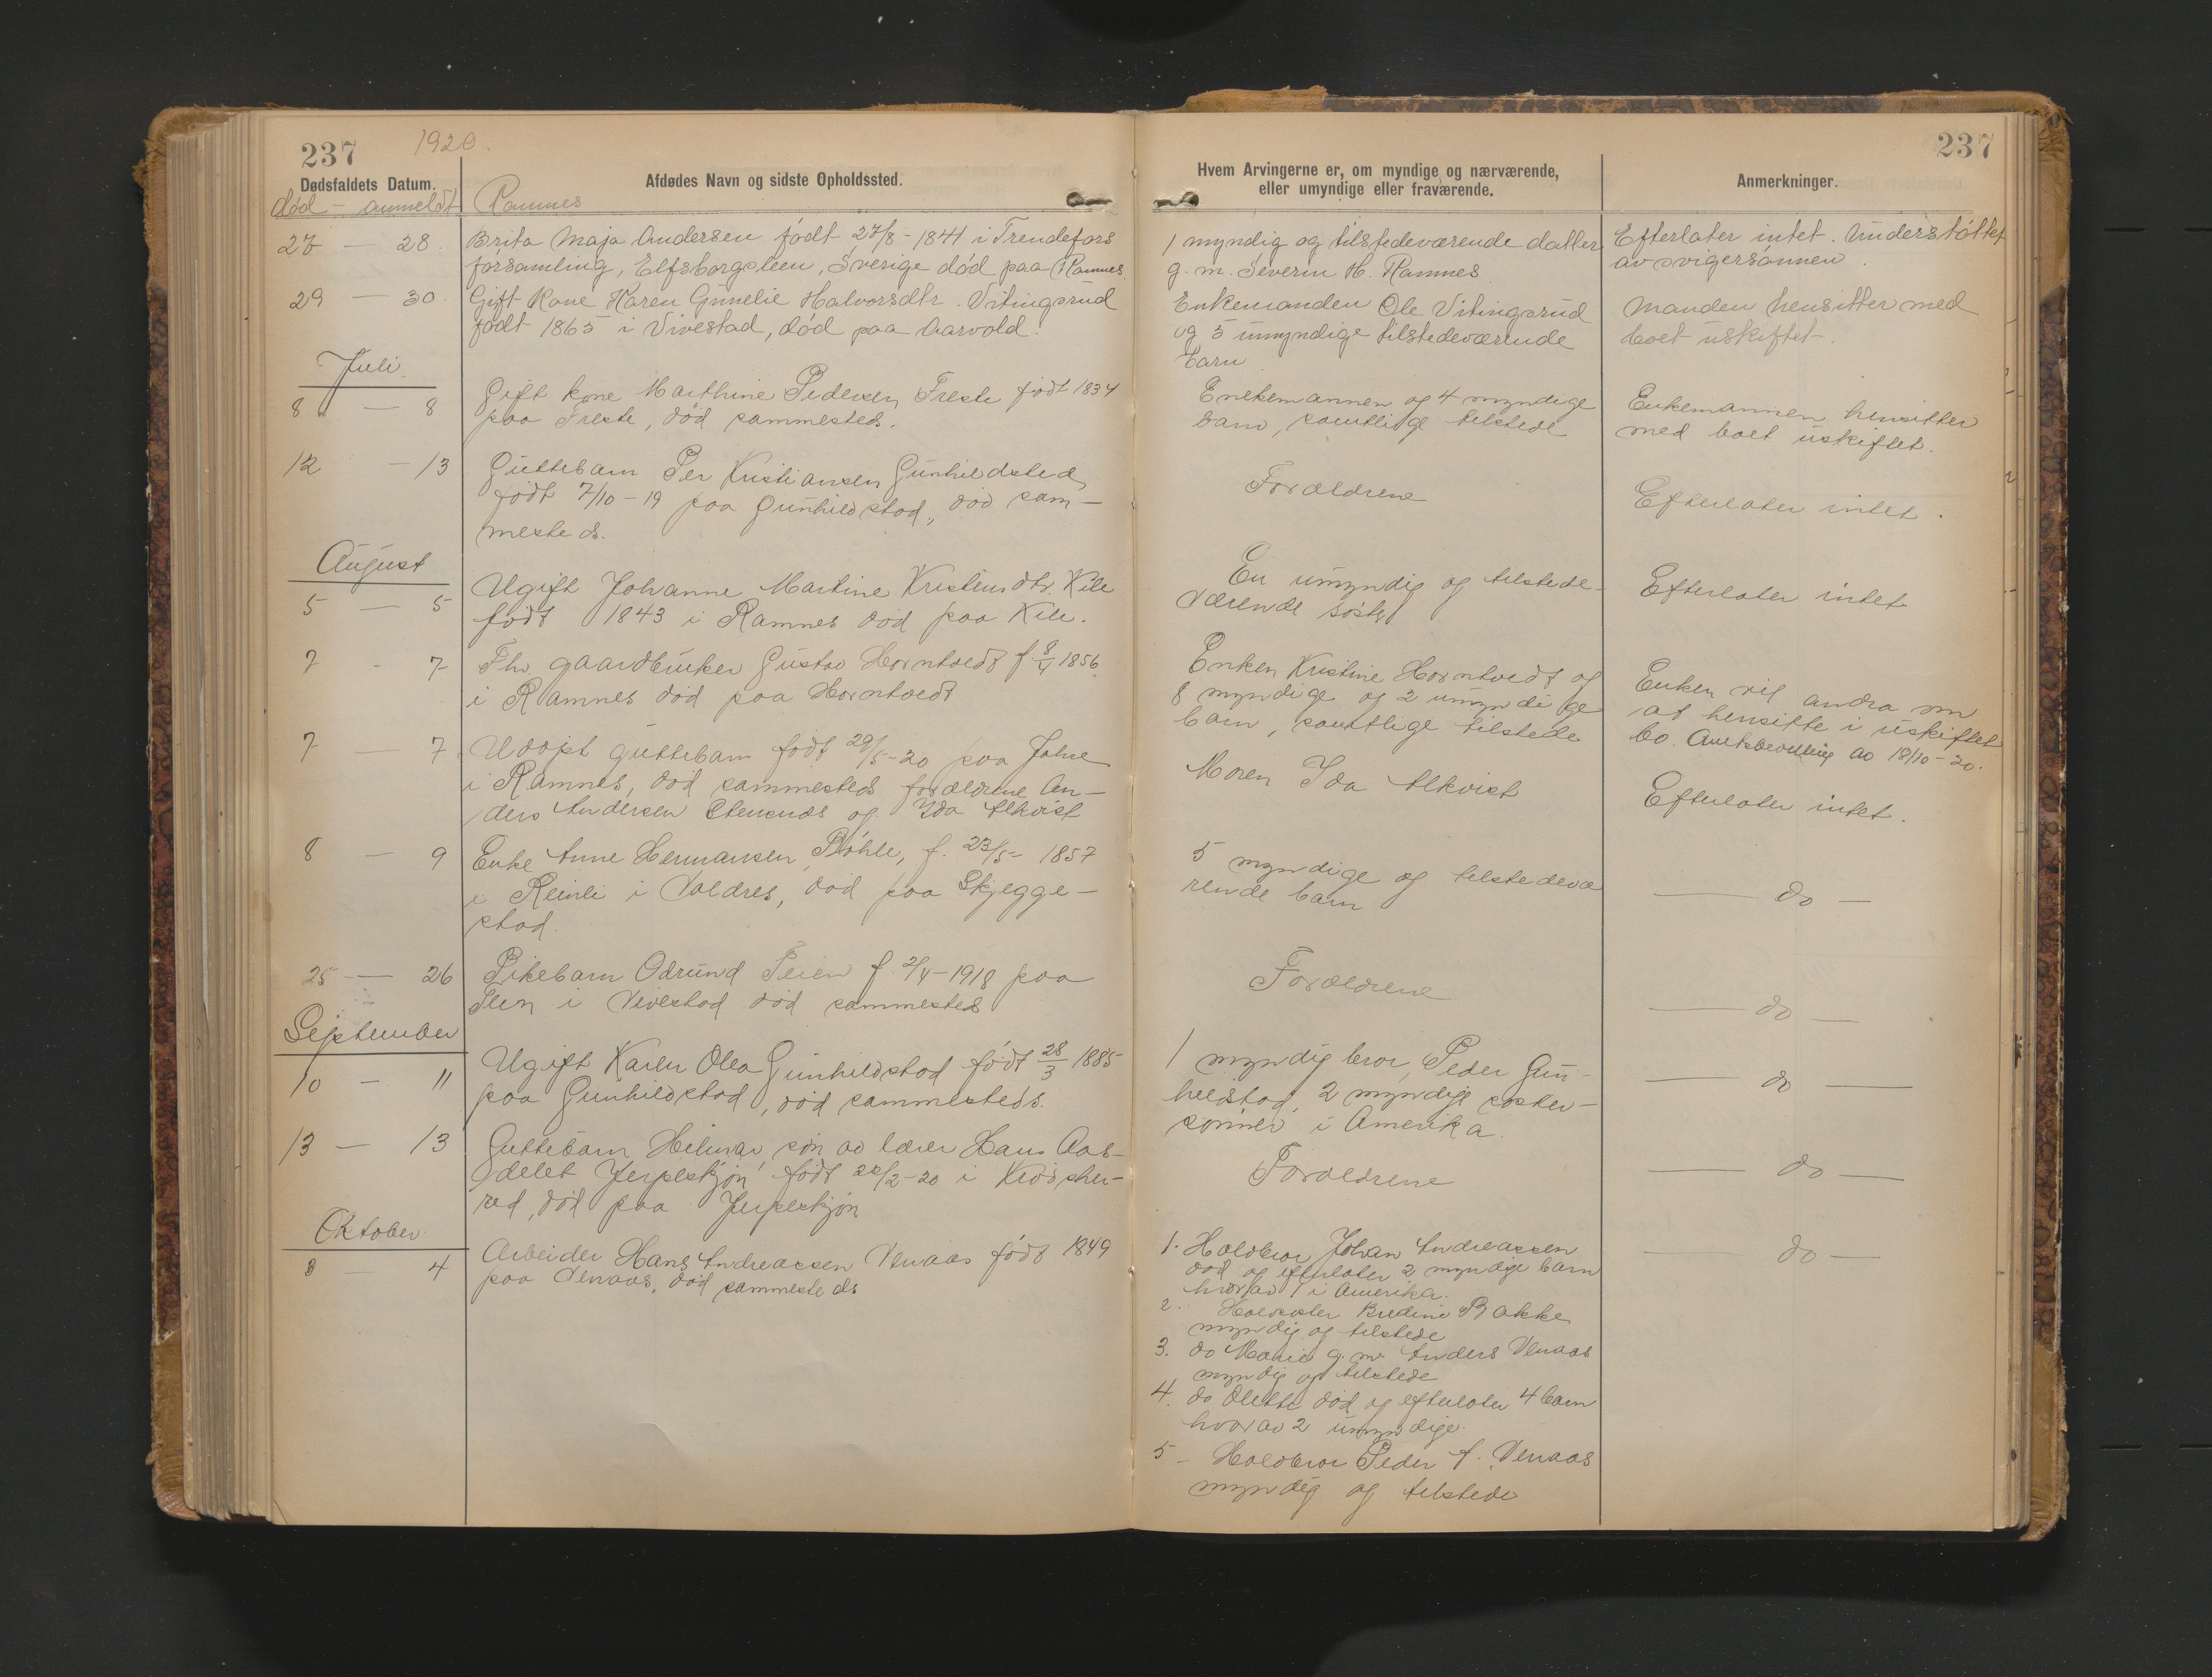 237 1920.
Dødsfaldets Datum.
død - anmeldt
Afdødes Navn og sidste Opholdssted.
Ramnes
27 — 28.
Brita Maja Andersen født 27/8 - 1841 i Trendefors
församling, Elfsborgsleen, Sverige død paa Ramnes
29 — 30.
Gift kone Karen Gunelie Halvorsdtr. Vitingsrud
født 1865 i Vivestad, død paa Aarvold.
Juli
8 — 8
Gift kone Marthine Pedersen Freste født 1834
paa Freste, død sammesteds.
12 — 13
Guttebarn Per Kristiansen Gunhildsted
født 7/10 - 19 paa Gunhildstad, død sam-
mesteds.
August
5 — 5
Ugift Johanne Martine Kristensdtr. Kile
født 1843 i Ramnes død paa Kile.
7 - 7
Fhv. gaardbruker Gustav Horntvedt f. 8/4 1856
i Ramnes død paa Horntvedt
7 — 7
Udøpt guttebarn født 29/5-20 paa Jahre
i Ramnes, død sammesteds forældrene An-
ders Andersen Stensnds og Ida Alkvist
8 — 9
Enke Anne Hermansen Bøhle, f. 23/5- 1857
i Reinli i Valdres, død paa Skjegge-
stad.
25 — 26
Pikebarn Odrund Teien f. 2/4-1918 paa
Teien i Vivestad død sammesteds
September
10 - 11
Ugift Karen Olea Gunhildstad født 28/3 1885
paa Gunhildstad, død sammesteds.
13 — 13
Guttebarn Hilmar søn av lærer Hans Aas-
delet Jerpeskjøn født 22/2-20 i Krødshe-
red, død paa Jerpeskjøn
Oktober
3 — 4
Arbeider Hans Andreassen Venaas født 1849
paa Venaas, død sammesteds
237
Hvem Arvingerne er, om myndige og nærværende,
eller umyndige eller fraværende.
Anmerkninger.
1 myndig og tilstedeværende datter
g. m. Severin H. Ramnes
Efterlater intet. Understøttet
av svigersønnen.
Enkemanden Ole Vitingsrud
og 3 umyndige tilstedeværende
barn
Manden hensitter med
boet uskiftet.
Enekemannen og 4 myndige
barn, samtlige tilstede
Enkemannen hensitter
med boet uskiftet.
Forældrene
Efterlater intet.
En umyndig og tilstede-
værende søster
Efterlater intet
Enken Kristine Horntvedt og
8 myndige og 2 umyndige
barn, samtlige tilstede
Enken vil andra om
at hensitte i uskiftet
bo. Amtsbevilling av 18/10-20.
Moren Ida Alkvist
Efterlater intet.
5 myndige og tilstedevæ
rende barn
— do —
Forældrene
— do —
1 myndig bror, Peder Gun-
heldstad, 2 myndige søster-
sønner i Amerika.
— do —
Forældrene
— do —
1. Halvbror Johan Andreassen
død og efterlater 2 myndige barn
hvorav 1 i Amerika.
— do —
2. Halvsøster Bredine Bakke
myndig og tilstede
3. do Marie g. m. Anders Venaas
myndig og tilstede
4. do Olette død og efterlater 4 barn
hvorav 2 umyndige.
5 - Halvbror Peder A. Venaas
myndig og tilstede